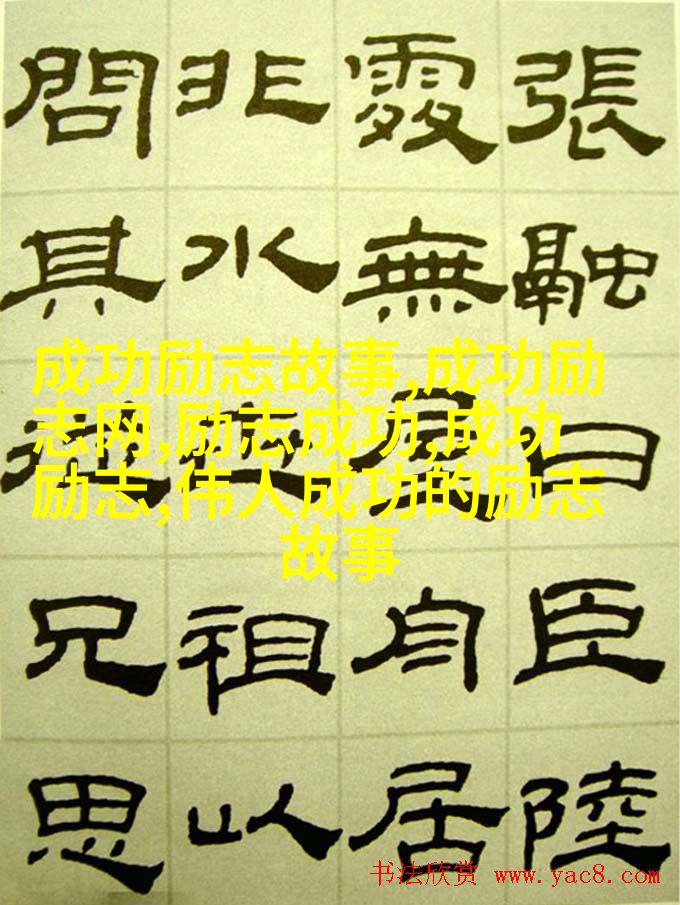 張融曰臣陸
處無屋舟居
非水太祖以
問其從兄思
成功励志故事,成功励
志网,励志成功,成功
励志,伟人成功的励志
故事
书法欣赏 www.yac8.com